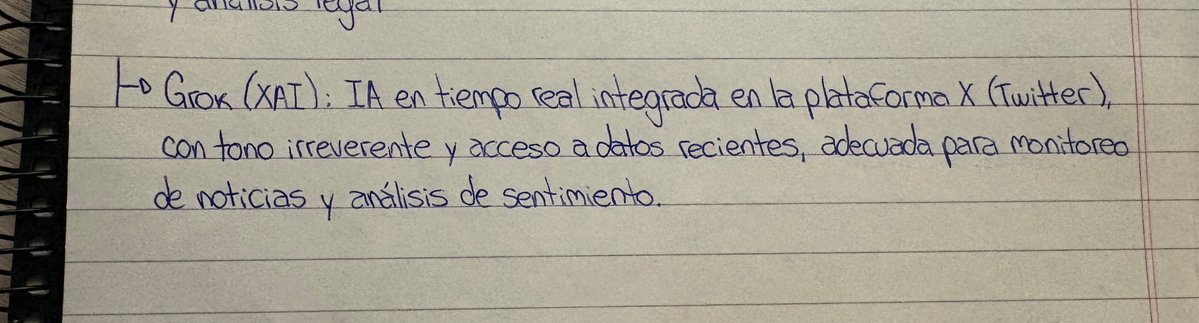 y análisis legal
↳ Grok (XAI): IA en tiempo real integrada en la plataforma X (Twitter),
con tono irreverente y acceso a datos recientes, adecuada para monitoreo
de noticias y análisis de sentimiento.